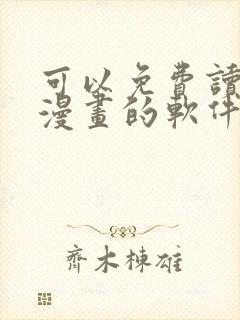 可以免費讀
漫畫的軟件
齊木棟雄